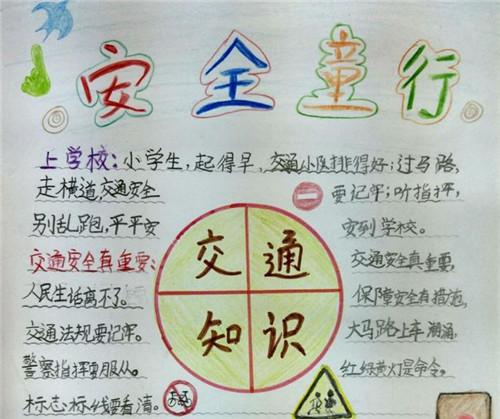 安全童行
上学校：小学生，起得早，交通小队排得好；过马路，
走横道，交通安全 要记牢；听指挥，
别乱跑，平平安 安到学校。
交通安全真重要： 交通安全真重要，
人民生活离不了。 保障安全有措施，
交通法规要记牢。 大马路上车潮涌，
警察指挥要服从。 红绿黄灯是命令，
标志标线要看清。
交通
知识